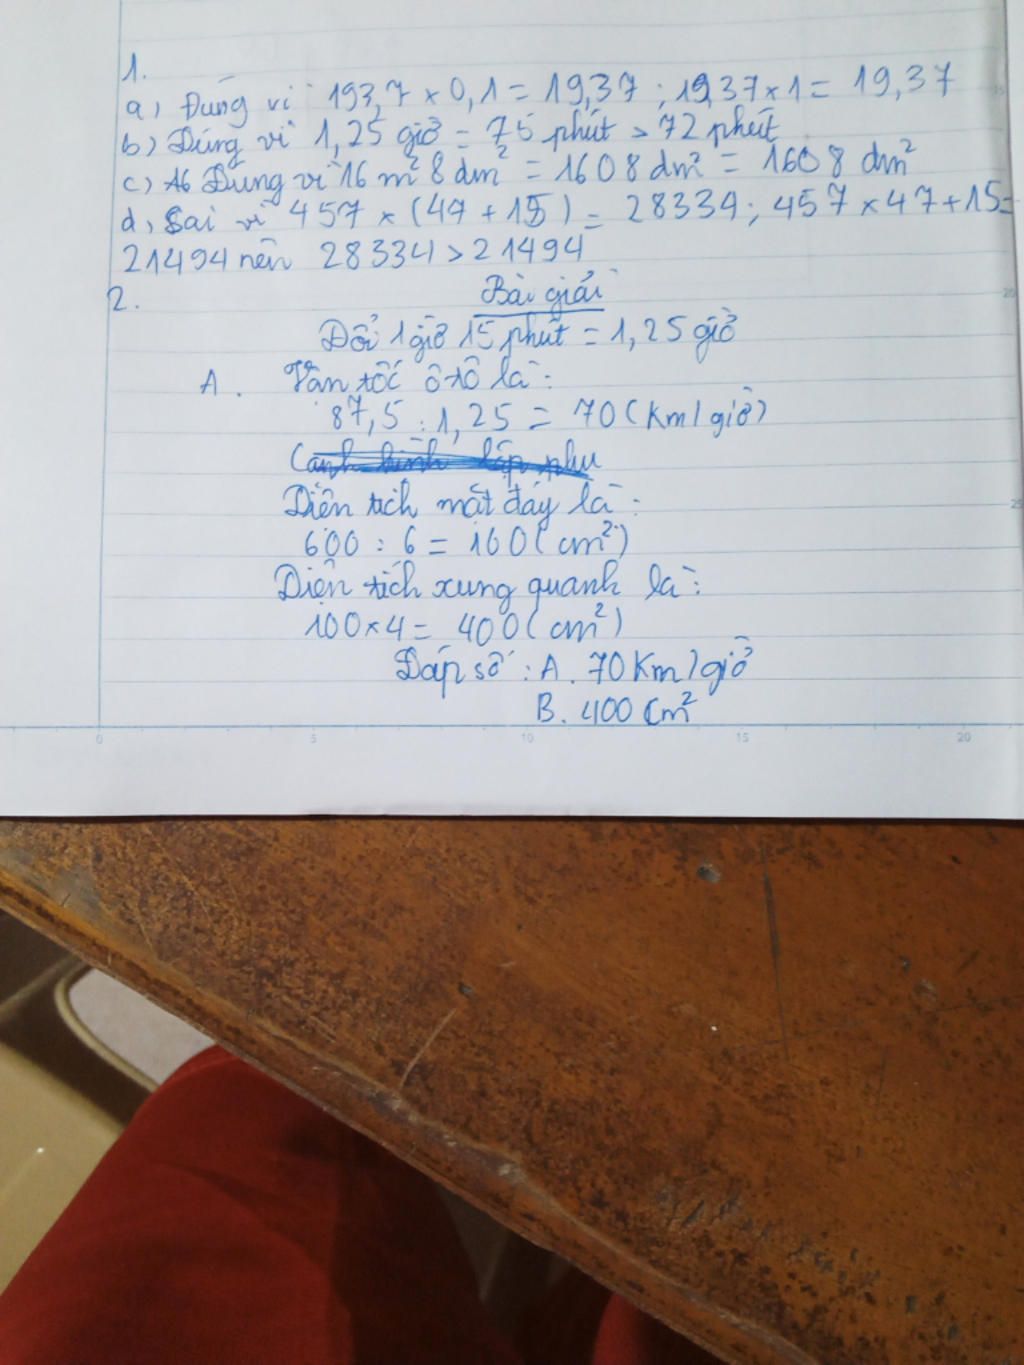 1.
a) Đúng vì 193,7 × 0,1 = 19,37 ; 19,37 × 1 = 19,37
b) Đúng vì 1,25 giờ = 75 phút > 72 phút
c) Đúng vì 16 m² 8 dm² = 1608 dm² = 1608 dm²
d) Sai vì 457 × (47 + 15) = 28334; 457 × 47 + 15 =
21494 nên 28334 > 21494
2. Bài giải
Đổi 1 giờ 15 phút = 1,25 giờ
A. Vận tốc ô tô là:
87,5 : 1,25 = 70 (Km/giờ)
Diện tích mặt đáy là:
600 : 6 = 100 (cm²)
Diện tích xung quanh là:
100 × 4 = 400 (cm²)
Đáp số: A. 70 Km/giờ
B. 400 Cm²
0 5 10 15 20
20
25